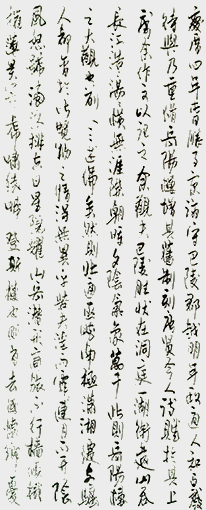 慶曆四年春滕子京謫守巴陵郡越明年政通人和百廢
待興乃重修岳陽樓增其舊制刻唐賢今人詩賦於其上
屬余作文以記之余觀夫巴陵勝狀在洞庭一湖銜遠山吞
長江浩浩湯湯橫無涯際朝暉夕陰氣象萬千此則岳陽樓
之大觀也前人之述備矣然則北通巫峽南極瀟湘遷客騷
人多會於此覽物之情得無異乎若夫霪雨霏霏連月不開陰
風怒號濁浪排空日星隱耀山岳潛形商旅不行檣傾楫
摧薄暮冥冥虎嘯猿啼登斯樓也則有去國懷鄉憂